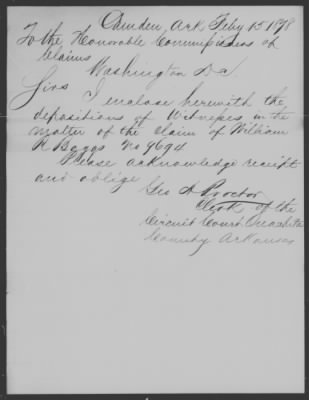 Camden, Ark Feby 15 1878
To the Honorable Commissioners of
Claims
Washington D C
Sirs I enclose herewith the
depositions of Witnesses in the
matter of the Claim of William
R Boggs No 9694
Please acknowledge receipt
and oblige
Geo A Proctor
Clerk of the
Circuit Court Ouachita
County Arkansas